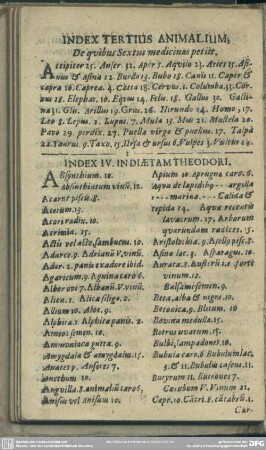 INDEX TERTIUS ANIMALIUM,
De quibus Sextus medicinas petiit.
Accipiter 25. Anser 32. Aper 7. Aquila 23. Aries 15. Asinus & Asina 12. Burdo 13. Bubo 18. Canis 11. Caper &
capra 16. Caprea. 4. Catta 18. Cervus. 1. Columba. 33. Corvus
18. Elephas. 10. Equus 14. Felis. 18. Gallus 30. Gallina
31. Glis. Grillus 19. Grus. 26. Hirundo 24. Homo, 17.
Leo 8. Lepus. 2. Lupus. 7. Mula 13. Mus 21. Mustella 20.
Pavo 29. perdix. 27. Puella virgo & puellus. 17. Talpa
22. Taurus. 9. Taxo. 15. Ursa & ursus 6. Vulpes 3. Vultur 24.
INDEX IV. IN DIÆTAM THEODORI.
Absynthium. 10.
absinthiatum vinū. 12.
Acarne piscis. 8.
Acetum. 13.
Acori radix. 10.
Acrimia. 15.
Acti vel acto, sambucus. 10.
Adarce 9. Adriani V. vinū.
Ador. 2. panis ex adore ibid.
Agaricum. 9. Agnina caro 6.
Albor ovi 7. Albani. V. vinū
Alica. 1. Alica siligo. 2.
Allium 10. Aloe. 9.
Alphita. 1 Alphita panis. 2.
Amomi semen. 10.
Ammoniaca gutta. 9.
Amygdala & amygdalin. 17.
Anates 9. Anseres 7.
Anethum 10.
Anguilla 8. animaliū caro 6,
Anisū vel Anisum 10,
Apium 10 aprugna caro 6.
Aqua de lapidib9 -- argilla
-- marina. -- Calida &
tepida 14. Aqua recentis
lavacrum. 17, Arborum
quarundam radices. 5.
Aristolochia. 9. Asellꝰ pisc. 8.
Asina lac. 3. Asparagus. 10.
Aurata. 8. Austeri 1. e. forte
vinum. 12.
Balsami semen. 9.
Beta, alba & nigra. 10.
Betonica. 9. Blitum. 16
Bovina medulla. 15.
Botrus uvarum. 15.
Bulbi, lampadones. 10.
Bubula caro. 6 Bubulum lac,
3. & 11. Bubulꝰ caseus. 11.
Butyrum 11. Buteones 7.
Cæcubum V. Vinum 21,
Cape. 10. Cãcri. 8. cãcabri. 1.
Car-